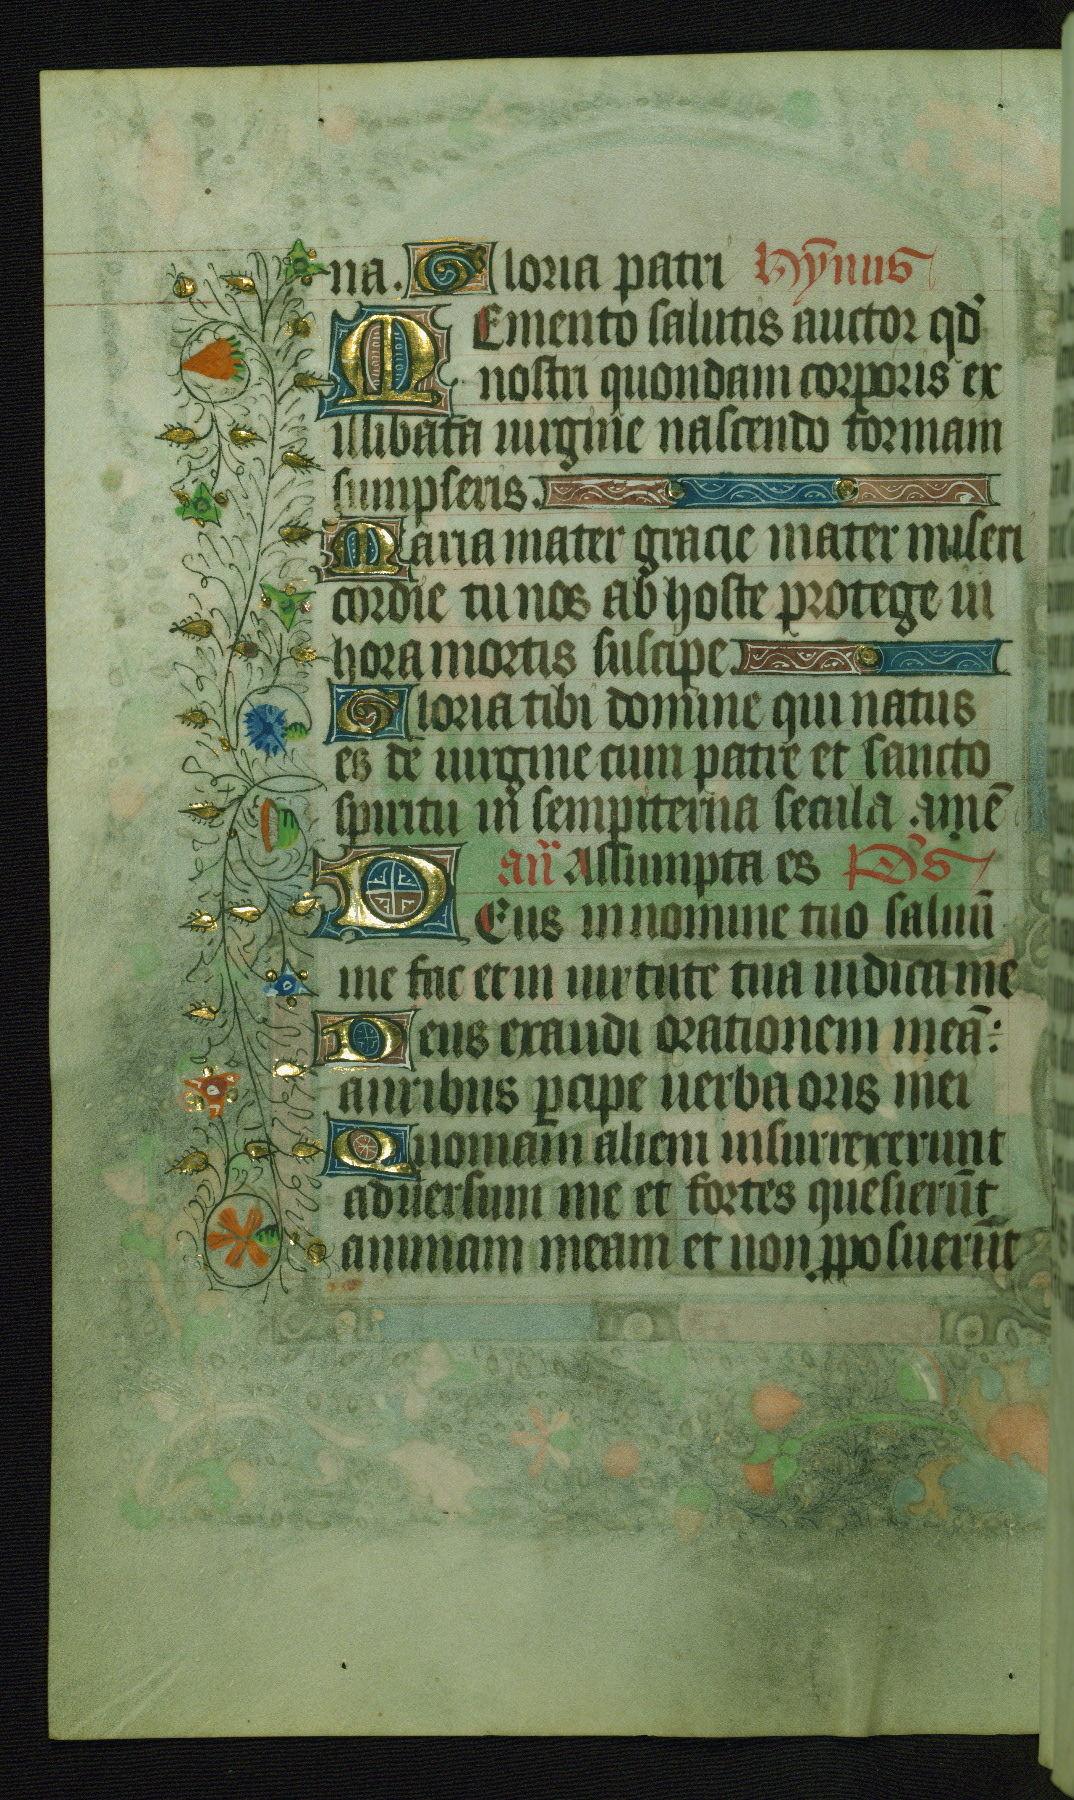 na. Gloria patri Hȳnus
Memento salutis auctor qd̉
nostri quondam corporis ex
illibata uirgine nascendo formam
sumpseris.
Maria mater gracie mater miseri
cordie tu nos ab hoste protege in
hora mortis suscipe.
Gloria tibi domine qui natus
es de uirgine cum patre et sancto
spiritu in sempiterna secula .amē
añ Assumpta es p̄s
Deus in nomine tuo saluū
me fac et in uirtute tua iudica me
Deus exaudi orationem meā:
auribus ꝑcipe uerba oris mei
Quoniam alieni insurrexerunt
aduersum me et fortes quesierūt
animam meam et non ꝓposuerūt